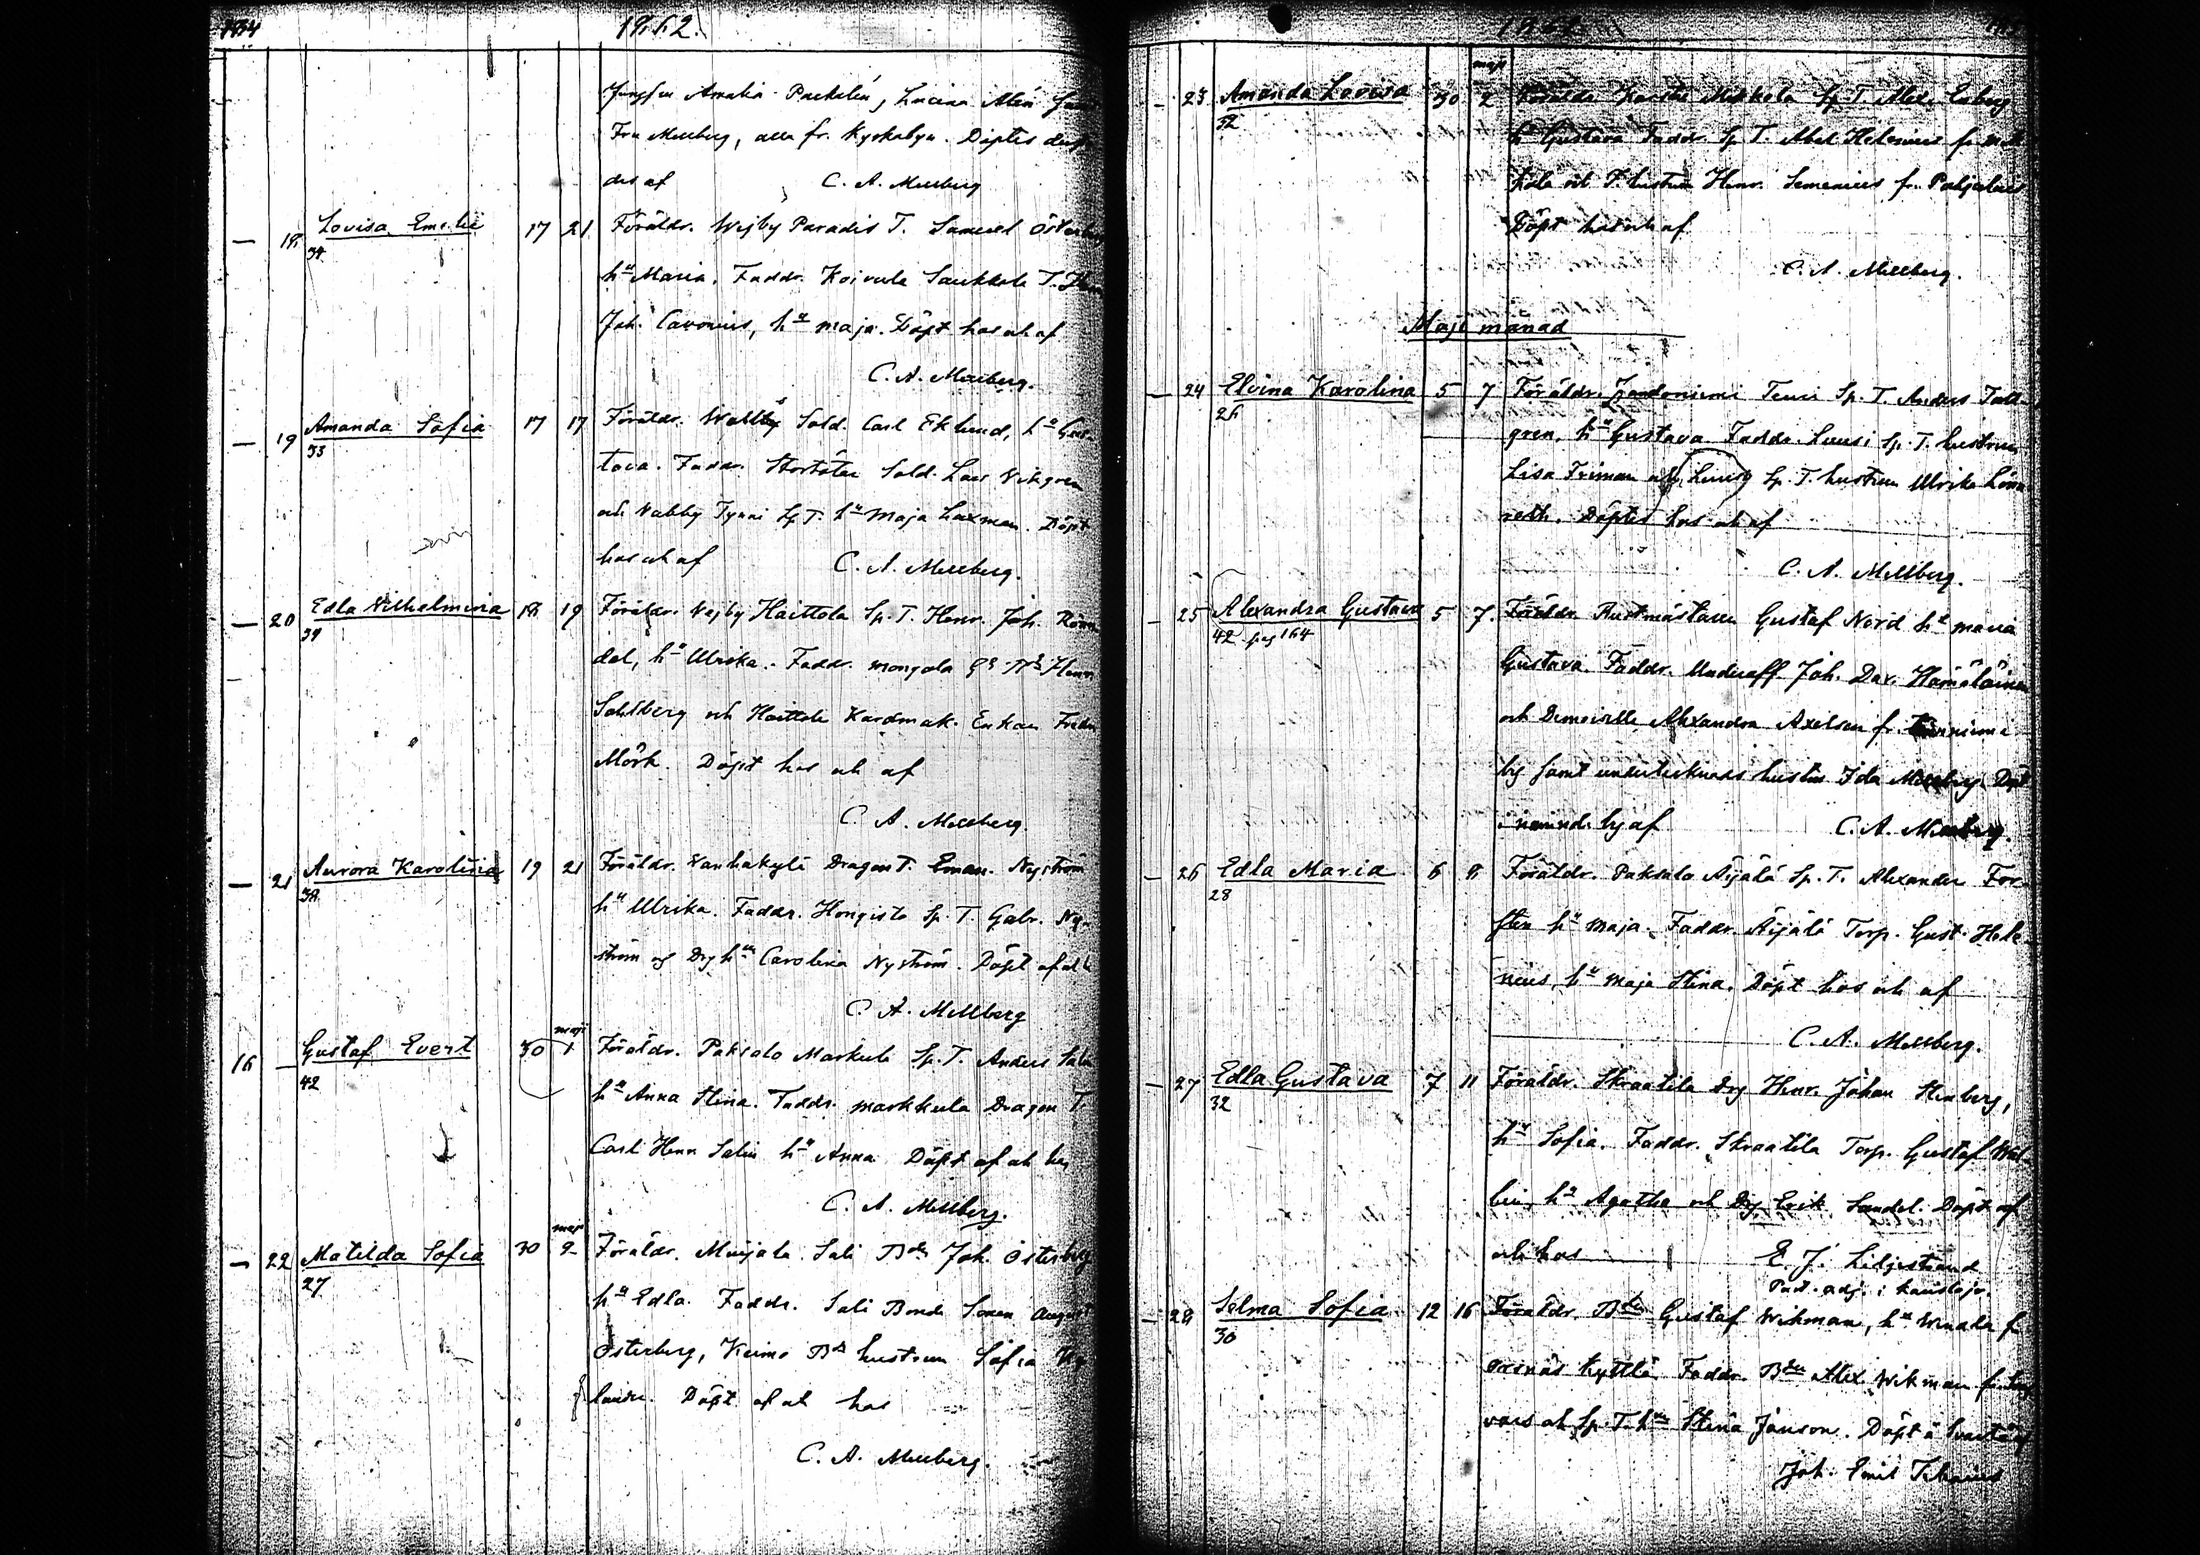 194
1862.
Jungfru Amalia Packalén, Lucina Alén
Fru Mellberg, alla fr. Kyrkobyn. Döptes
des af C. A. Mellberg
— 18 Lovisa Emelie 17 21 Föräldr. Wejby Paradis T. Samuel Österberg
34
hu Maria. Faddr. Koivula Saukkola T.
Joh. Cavonius, hu Maja. Döpt hos och af
C. A. Mellberg.
— 19 Amanda Sofia 17 17 Föräldr. Wabby Sold. Carl Eklund, hu Gus-
33
tava. Faddr. Sold. Lars Wikgren
och Nabby Tynni Sp. T. hu Maja Laxman. Döpt
hos och af C. A. Mellberg.
— 20 Edla Vilhelmina 18 19 Föräldr. Vejby Haittola Sp. T. Henr. Joh. Rönn
39
dal, hu Ulrika. Faddr. Mongola Henr
Sahlberg och Haittola Kardmak. Enkan Fredr
Mörk. Döpt hos och af
C. A. Mellberg.
— 21 Aurora Karolina 19 21 Föräldr. Vanhakylä Dragon T. Eman. Nyström
38
hu Ulrika. Faddr. Hongisto Sp. T. Gabr. Ny-
ström og Drg hu Carolina Nyström. Döpt af och
C. A. Mellberg
maji
16 — Gustaf Evert 30 1 Föräldr. Paksalo Markula Sp. T. Anders Salin
42
hu Anna Stina. Faddr. Markkula Dragon T.
Carl Henr Salin hu Anna Döpt af och hos
C. A. Mellberg.
maji
— 22 Matilda Sofia 30 2 Föräldr. Muijala Sali Bdn Joh. Österberg
27
hu Edla. Faddr. Sali Bonde Sonen August
Österberg, Keimo Bds hustrun Sofia
lander. Döpt af och hos
C. A. Mellberg.
maji
— 23 Amanda Lovisa 30 2 Föräldr. Mikkola Sp. T. Alex. Enberg
32
hu Gustava Faddr. Sp. T. Abel Helenius fr.
kola och T. hustrun Henr. Semenius fr.
Döpt hos och af
C. A. Mellberg.
Maji månad
— 24 Elvina Karolina 5 7 Föräldr. Tenri Sp. T. Anders Tall-
26
gren, hu Gustava Faddr. Luusi Sp. T. hustrun
Lisa Friman och Luusi Sp. T. hustrun Ulrika Lönn
roth. Döptes hos och af
C. A. Mellberg.
— 25 Alexandra Gustava 5 7. Föräldr. Rustmästaren Gustaf Nord hu Maria
42 pag 164
Gustava. Faddr. Underoff. Joh. Dav. Hämäläinen
och Demoiselle Alexandra Axelson fr.
by samt undertecknads hustru Ida Mellberg. Döpt
i nämnd. by af C. A. Mellberg.
— 26 Edla Maria 6 8 Föräldr. Paksalo Äijälä Sp. T. Alexander For-
28
sten hu Maja. Faddr. Äijälä Torp. Gust. Hele-
nius, hu Maja Stina. Döpt hos och af
C. A. Mellberg.
— 27 Edla Gustava 7 11 Föräldr. Skraatila Drg Henr. Johan Stenberg,
32
hu Sofia. Faddr. Skraatila Torp. Gustaf Wal-
lin, hu Agatha och Drg Erik Sandel. Döpt af
och hos E. J. Liljestrand
Past. adj. i Karislojo.
— 28 Selma Sofia 12 16 Föräldr. Bdn Gustaf Wikman, hu
30
Ormnäs Kyttlä Faddr. Bdn Alex Wikman fr.
vois och Sp. T. hu Stina Jönson. Döpt å Svartå af
Joh. Emil